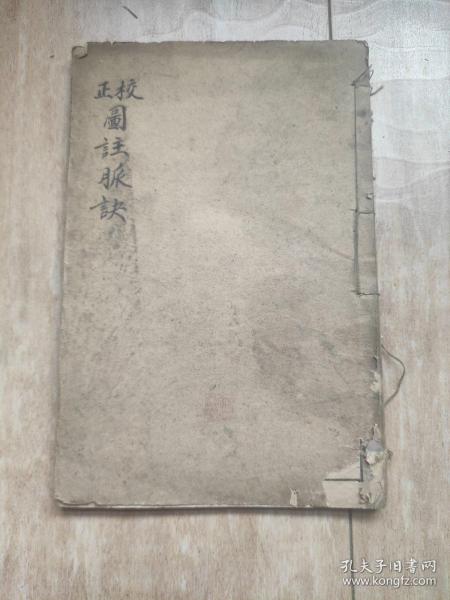 校正
圖註脈訣
孔夫子旧书网
www.kongfz.com